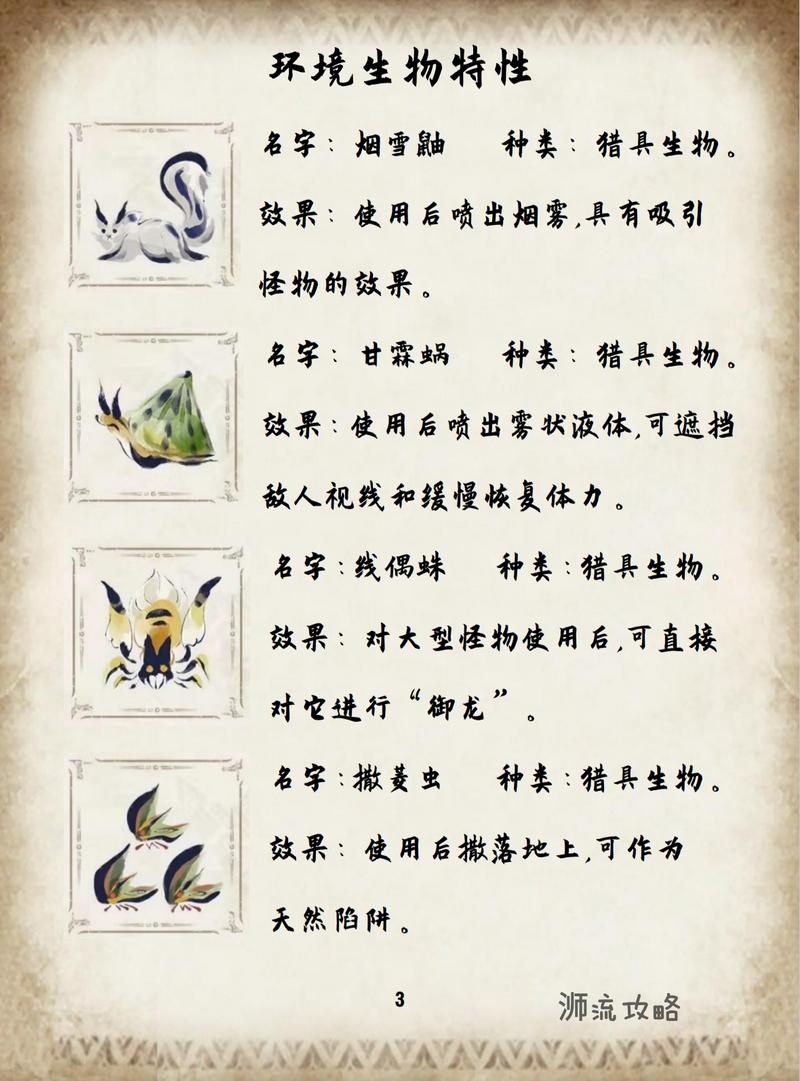 环境生物特性
名字：烟雪鼬 种类：猎具生物。
效果：使用后喷出烟雾,具有吸引
怪物的效果。
名字：甘霖蜗 种类：猎具生物。
效果：使用后喷出雾状液体,可遮挡
敌人视线和缓慢恢复体力。
名字：线偶蛛 种类：猎具生物。
效果：对大型怪物使用后,可直接
对它进行“御龙”。
名字：撒菱虫 种类：猎具生物。
效果：使用后撒落地上,可作为
天然陷阱。
3
浉流攻略